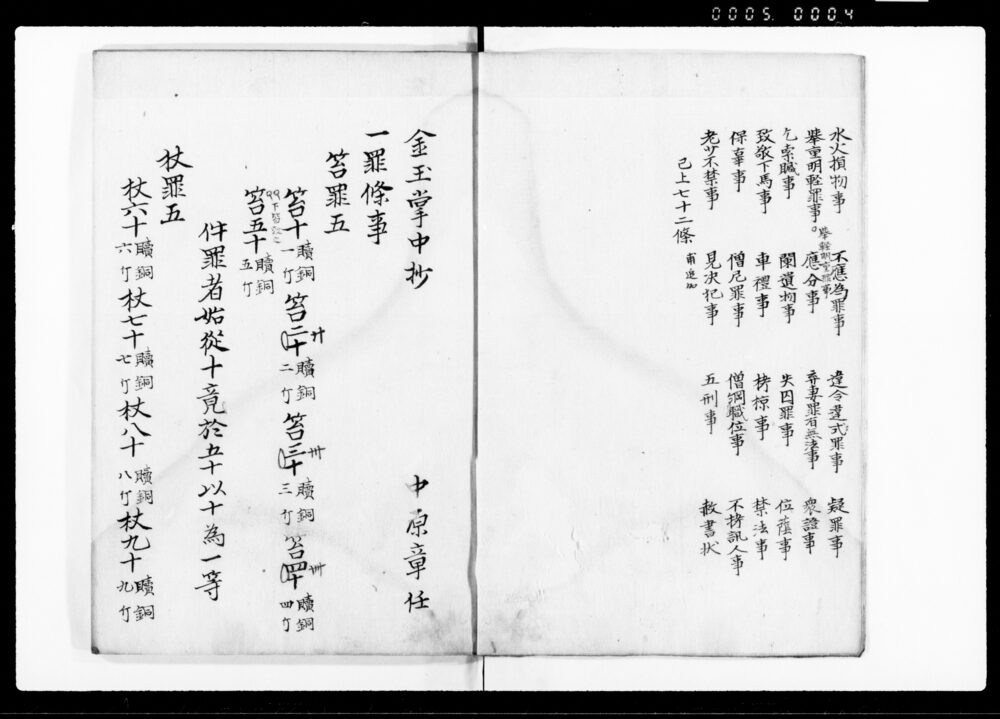 0005. 0004
水火損物事 不應為罪事 違令違式罪事 疑罪事
挙重明軽罪事。挙軽明重罪事 應分事 弃妻罪有無法事 衆證事
乞索贓事 闌遺物事 失囚罪事 位蔭事
致敬下馬事 車禮事 拷掠事 禁法事
保辜事 僧尼罪事 僧綱職位事 不拷訊人事
老少不禁事 見决犯事 五刑事 赦書状
已上七十二條
金玉掌中抄 中原章任
一罪條事
笞罪五
笞十 贖銅一斤 笞二十 廿 贖銅二斤 笞三十 卅 贖銅三斤 笞四十 卌 贖銅四斤
笞五十 贖銅五斤
件罪者始従十竟於五十以十為一等
杖罪五
杖六十 贖銅六斤 杖七十 贖銅七斤 杖八十 贖銅八斤 杖九十 贖銅九斤